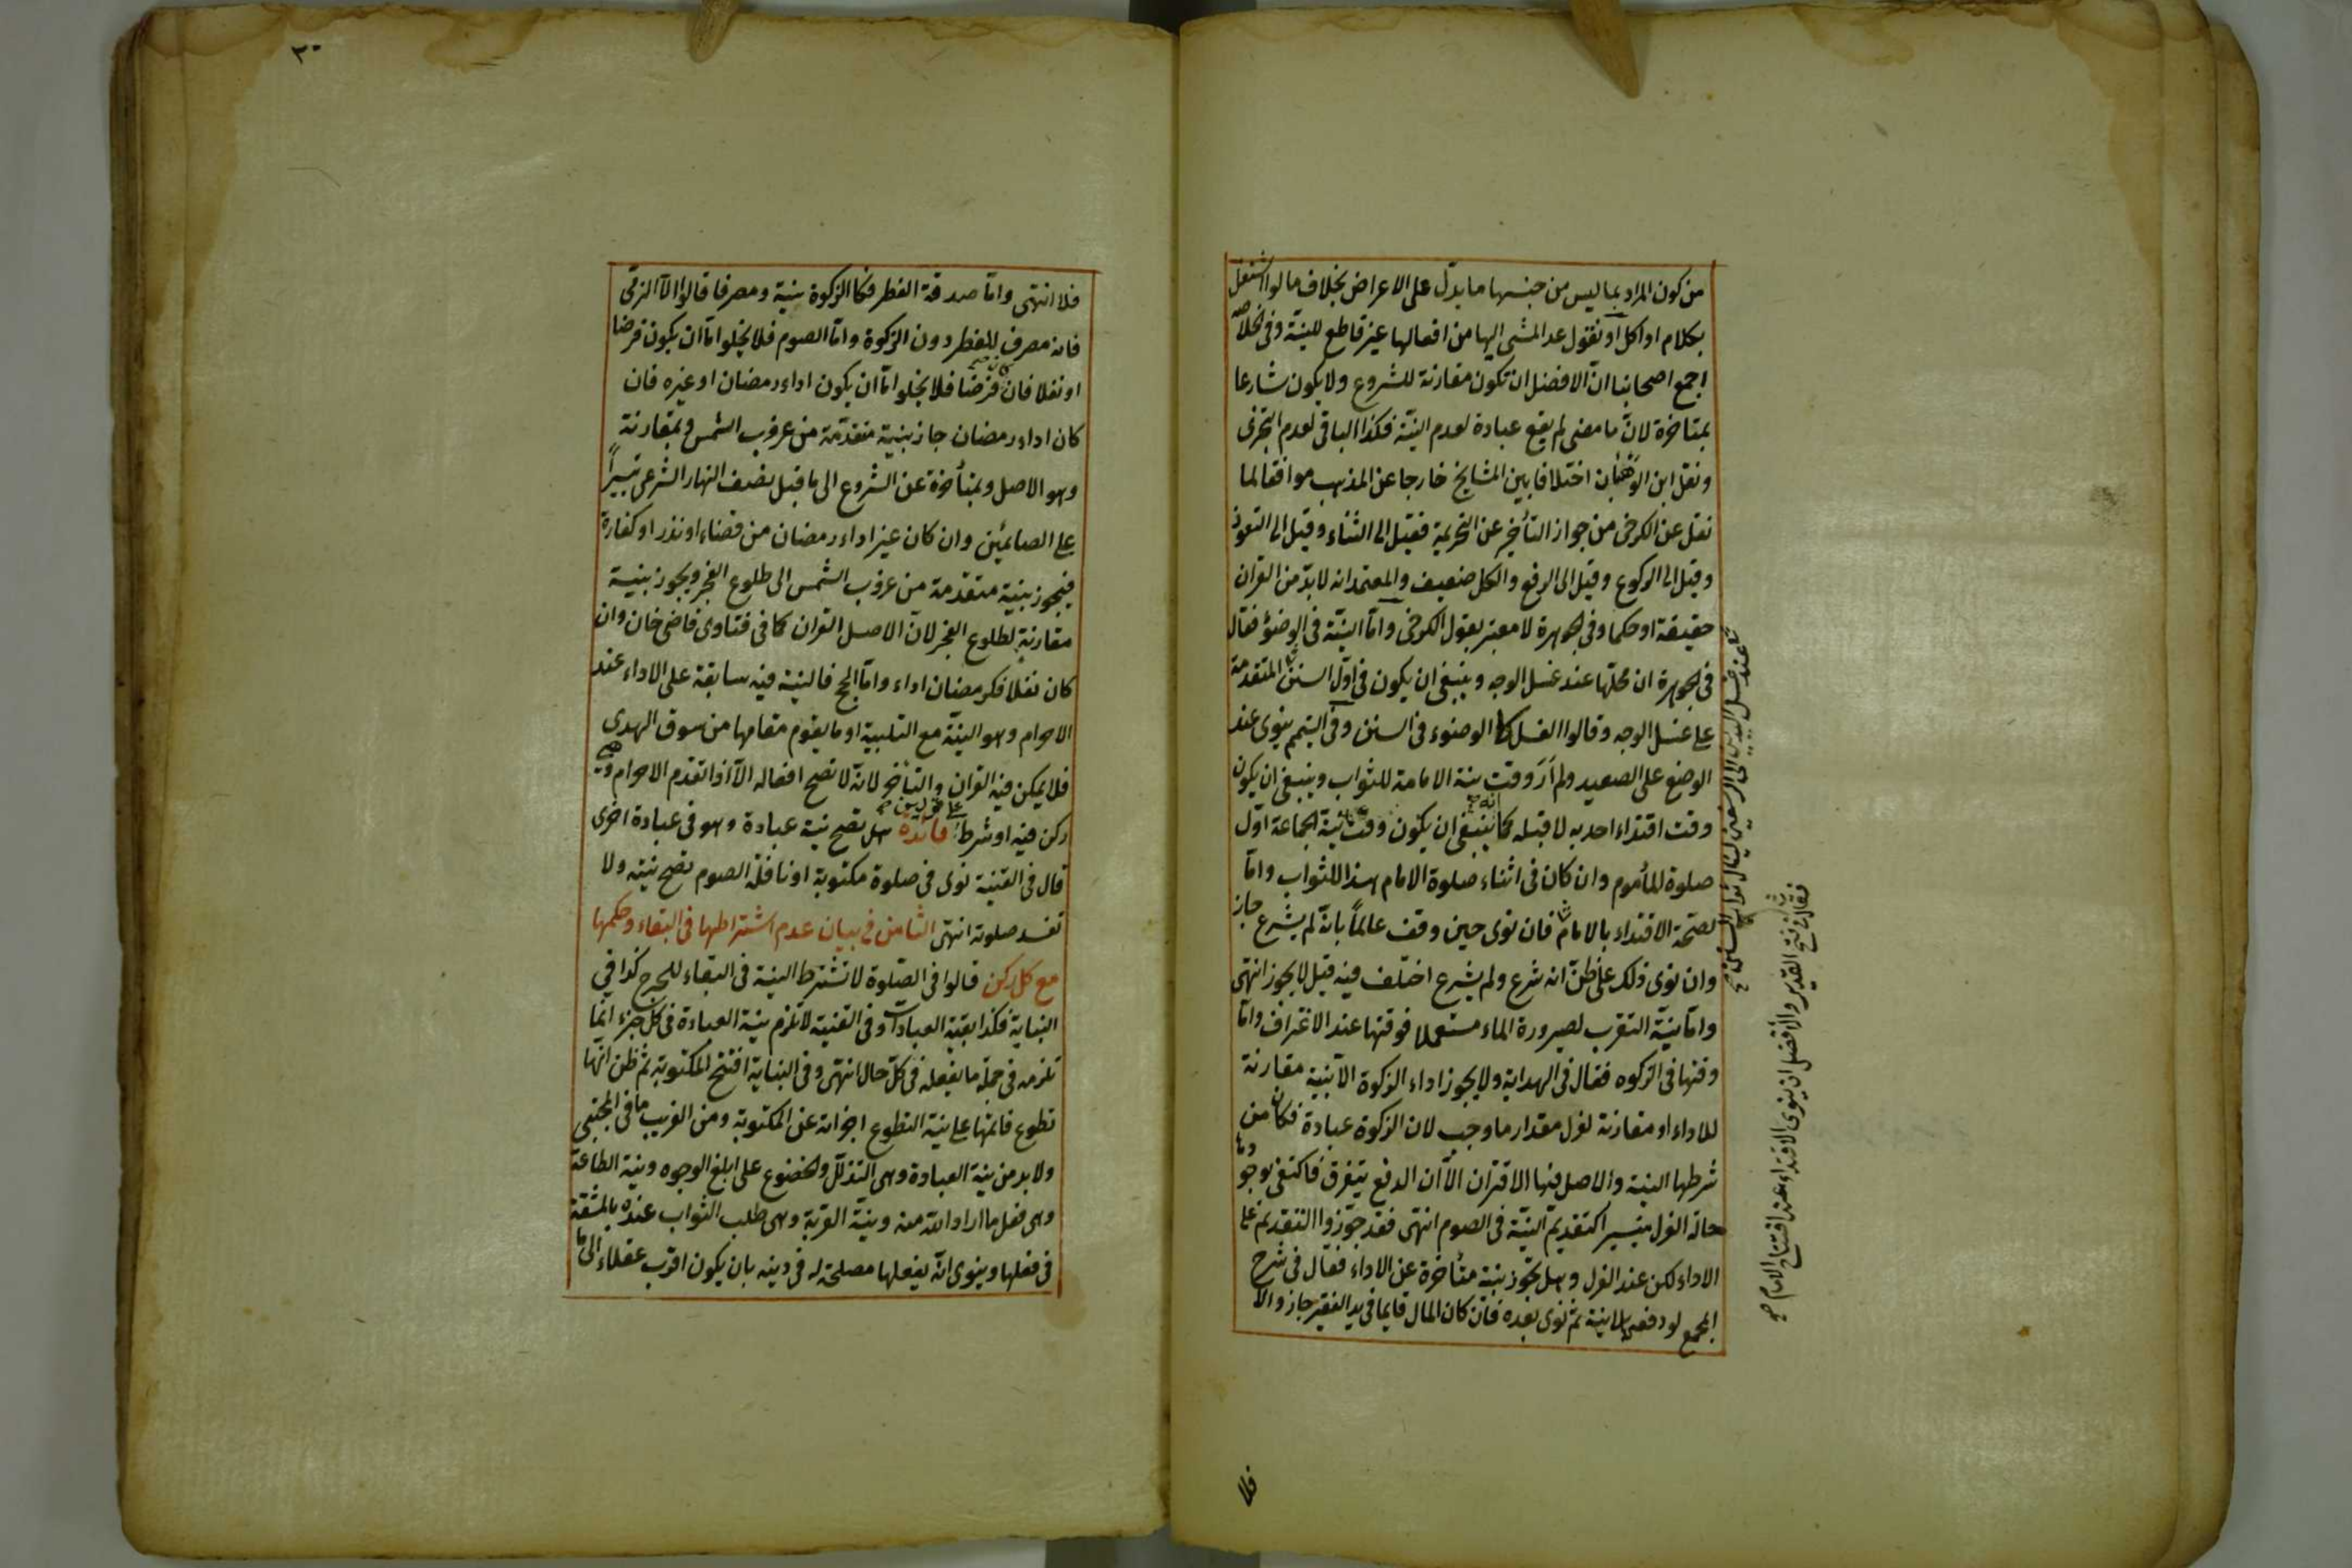 من كون المراد بما ليس من جنسها ما يدلّ على الاعراض بخلاف ما لو اشتغل
بكلام او اكل او نقول عد المشى اليها من افعالها غير قاطع للنيّة وفى الخلاصه
اجمع اصحابنا انّ الافضل ان تكون مقارنة للشروع ولا يكون شارعا
بمتاخرة لانّ ما مضى لم يقع عبادة لعدم النيّة فكذا الباقى لعدم التجزى
ونقل ابن الوهبان اختلافا بين المشايخ خارجا عن المذهب موافقا لما
نقل عن الكرخى من جواز التأخير عن التحريمة فقيل الى الثناء وقيل الى التعوذ
وقيل الى الركوع وقيل الى الرفع والكل ضعيف والمعتمد انه لا بدّ من القران
حقيقة او حكما وفى الجوهرة لا معتبر بقول الكرخى وامّا النيّة فى الوضؤ فقال
فى الجوهرة ان محلّها عند غسل الوجه وينبغى ان يكون فى اوّل السنن المتقدمة
على غسل الوجه وقالوا الغسل كالوضوء فى السنن وفى التيمم ينوى عند
الوضع على الصعيد ولم أرَ وقت نية الامامة للثواب وينبغى ان يكون
وقت اقتداء احد به لا قبله كما انه ينبغى ان يكون وقت نية الجماعة اوّل
صلوة المأموم وان كان فى اثناء صلوة الامام هذا للثواب وامّا
لصحّة الاقتداء بالامام فان نوى حين وقف عالماً بانّه لم يشرع جاز
وان نوى ذلك على ظنّ انه شرع ولم يشرع اختلف فيه قيل لا يجوز انتهى
وامّا نيّة التقرب لصيرورة الماء مستعملا فوقتها عند الاغتراف وامّا
وقتها فى الزكوه فقال فى الهداية ولا يجوز اداء الزكوة الّا بنية مقارنة
للاداء او مقارنة لعزل مقدار ما وجب لان الزكوة عبادة فكان من
شرطها النية والاصل فيها الاقتران الّا ان الدفع يتفرق فاكتفى بوجودها
حالة العزل تيسيرا كتقديم النيّة فى الصوم انتهى فقد جوّزوا التقديم على
الاداء لكن عند العزل وهل تجوز بنية متأخرة عن الاداء فقال فى شرح
المجمع لو دفعها بلا نية ثمّ نوى بعده فان كان المال قايما فى يد الفقير جاز والّا
فلا
عند غسل اليدين الى الرسغين لينال ثواب السنن صح
فقال فى فتح القدير والافضل ان ينوى الاقتداء عند افتتاح الامام صح
٣٠
فلا انتهى وامّا صدقة الفطر فكالزكوة بنية ومصرفا قالوا الّا الذمّى
فانه مصرف للفطر دون الزكوة وامّا الصوم فلا يخلوا امّا ان يكون فرضا
او نفلا فان كان فرضا فلا يخلوا امّا ان يكون اداء رمضان او غيره فان
كان اداء رمضان جاز بنية متقدّمة من غروب الشمس وبمقارنة
وهو الاصل وبمتأخرة عن الشروع الى ما قبل نصف النهار الشرعى تيسيراً
على الصائمين وان كان غير اداء رمضان من قضاء او نذر او كفارة
فيجوز بنية متقدمة من غروب الشمس الى طلوع الفجر ويجوز بنية
مقارنة لطلوع الفجر لانّ الاصل القران كما فى فتاوى قاضى خان وان
كان نفلا فكرمضان اداء وامّا الحج فالنية فيه سابقة على الاداء عند
الاحرام وهو النيّة مع التلبية او ما يقوم مقامها من سوق الهدى
فلا يمكن فيه القران والتأخر لانّه لا تصح افعاله الّا اذا تقدم الاحرام وهى
ركن فيه او شرط على قولين صح فائدة هل تصح نية عبادة وهو فى عبادة اخرى
قال فى القنية نوى فى صلوة مكتوبة او نافلة الصوم تصح نيته ولا
تفسد صلوته انتهى الثامن فى بيان عدم اشتراطها فى البقاء وحكمها
مع كل ركن قالوا فى الصّلوة لا تشترط النية فى البقاء للحرج كذا فى
النهاية فكذا بقية العبادات وفى القنية لا تلزم نية العبادة فى كل جزء انما
تلزمه فى جملة ما يفعله فى كلّ حال انتهى وفى البناية افتتح المكتوبة ثم ظن انّها
تطوع فاتمّها على نية التطوع اجزاته عن المكتوبة ومن الغريب ما فى المجتبى
ولا بد من نية العبادة وهى التذلّل والخضوع على ابلغ الوجوه ونية الطاعة
وهى فعل ما اراد اللّه منه ونيّة القربة وهى طلب الثواب عنده بالمشقة
فى فعلها وينوى انّه يفعلها مصلحة له فى دينه بان يكون اقرب عقلاء الى ما